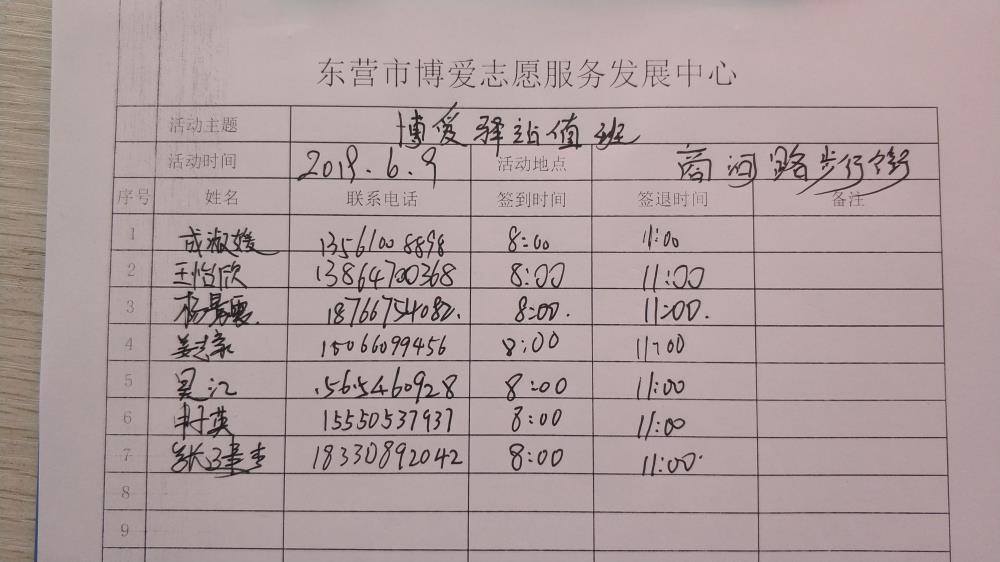 东营市博爱志愿服务发展中心
活动主题 博爱驿站值班
活动时间 2019.6.9 活动地点 商河路步行街
序号 姓名 联系电话 签到时间 签退时间 备注
1 成淑媛 13561008898 8:00 11:00
2 王怡欣 13864700368 8:00 11:00
3 杨 18766754082. 8:00. 11:00.
4 姜志家 15066099456 8:00 11:00
5 吴江 8:00 11:00
6 英 15550537937 8:00 11:00
7 张 18330892042 8:00 11:00
8
9